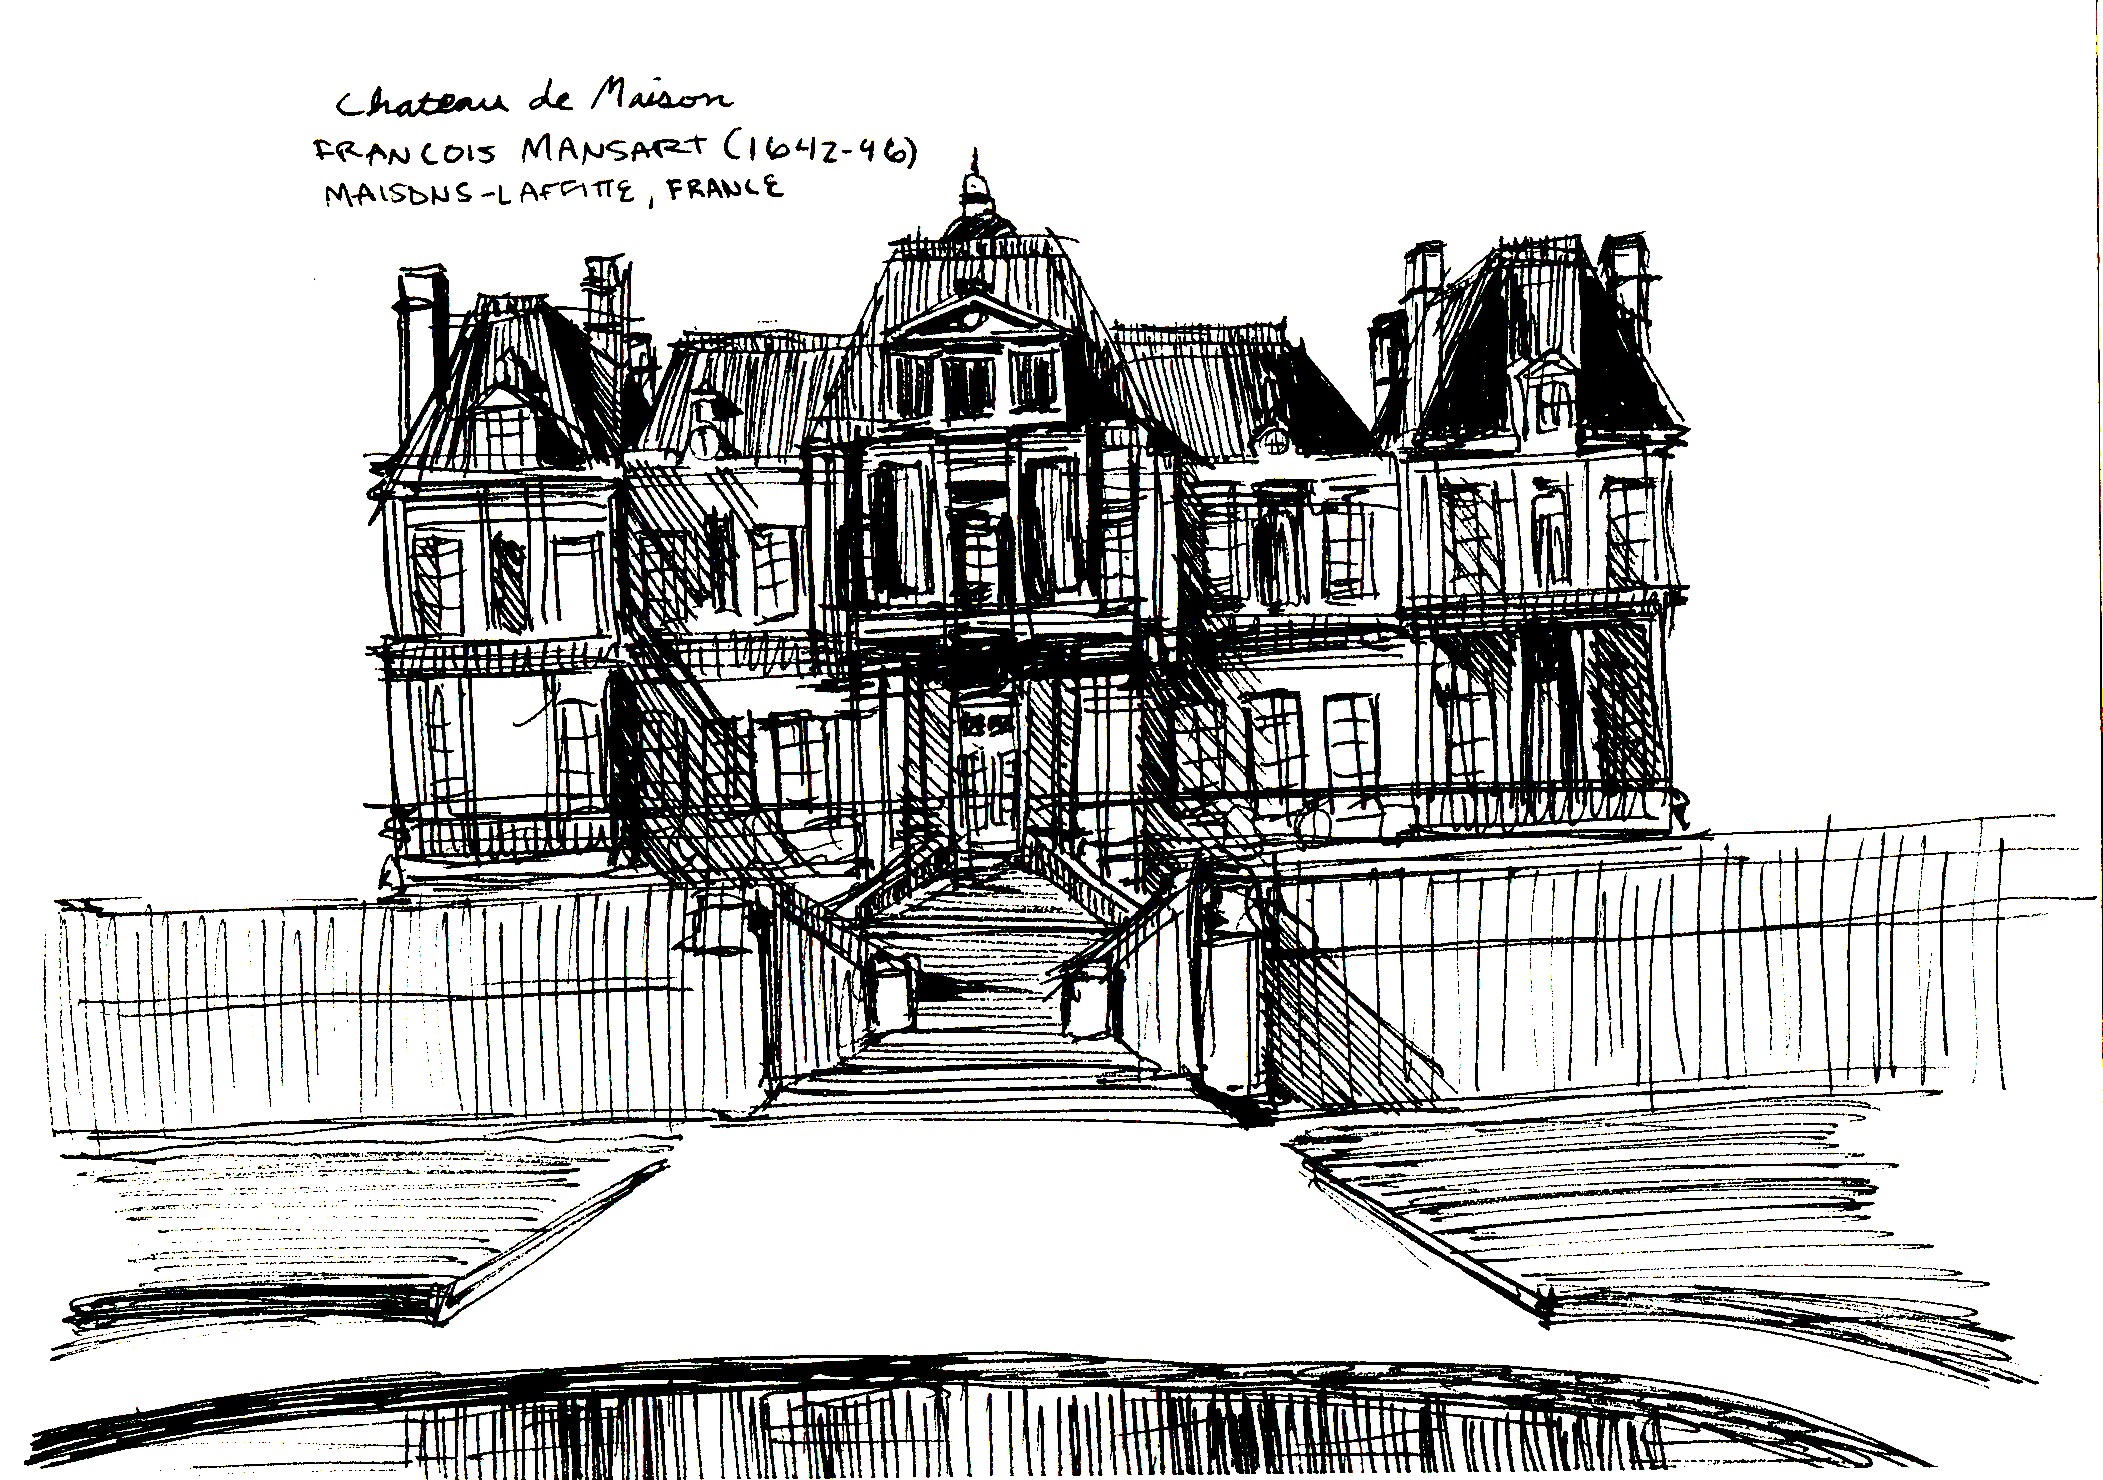 Chateau de Maison
FRANCOIS MANSART (1642-46)
MAISONS-LAFFITTE, FRANCE